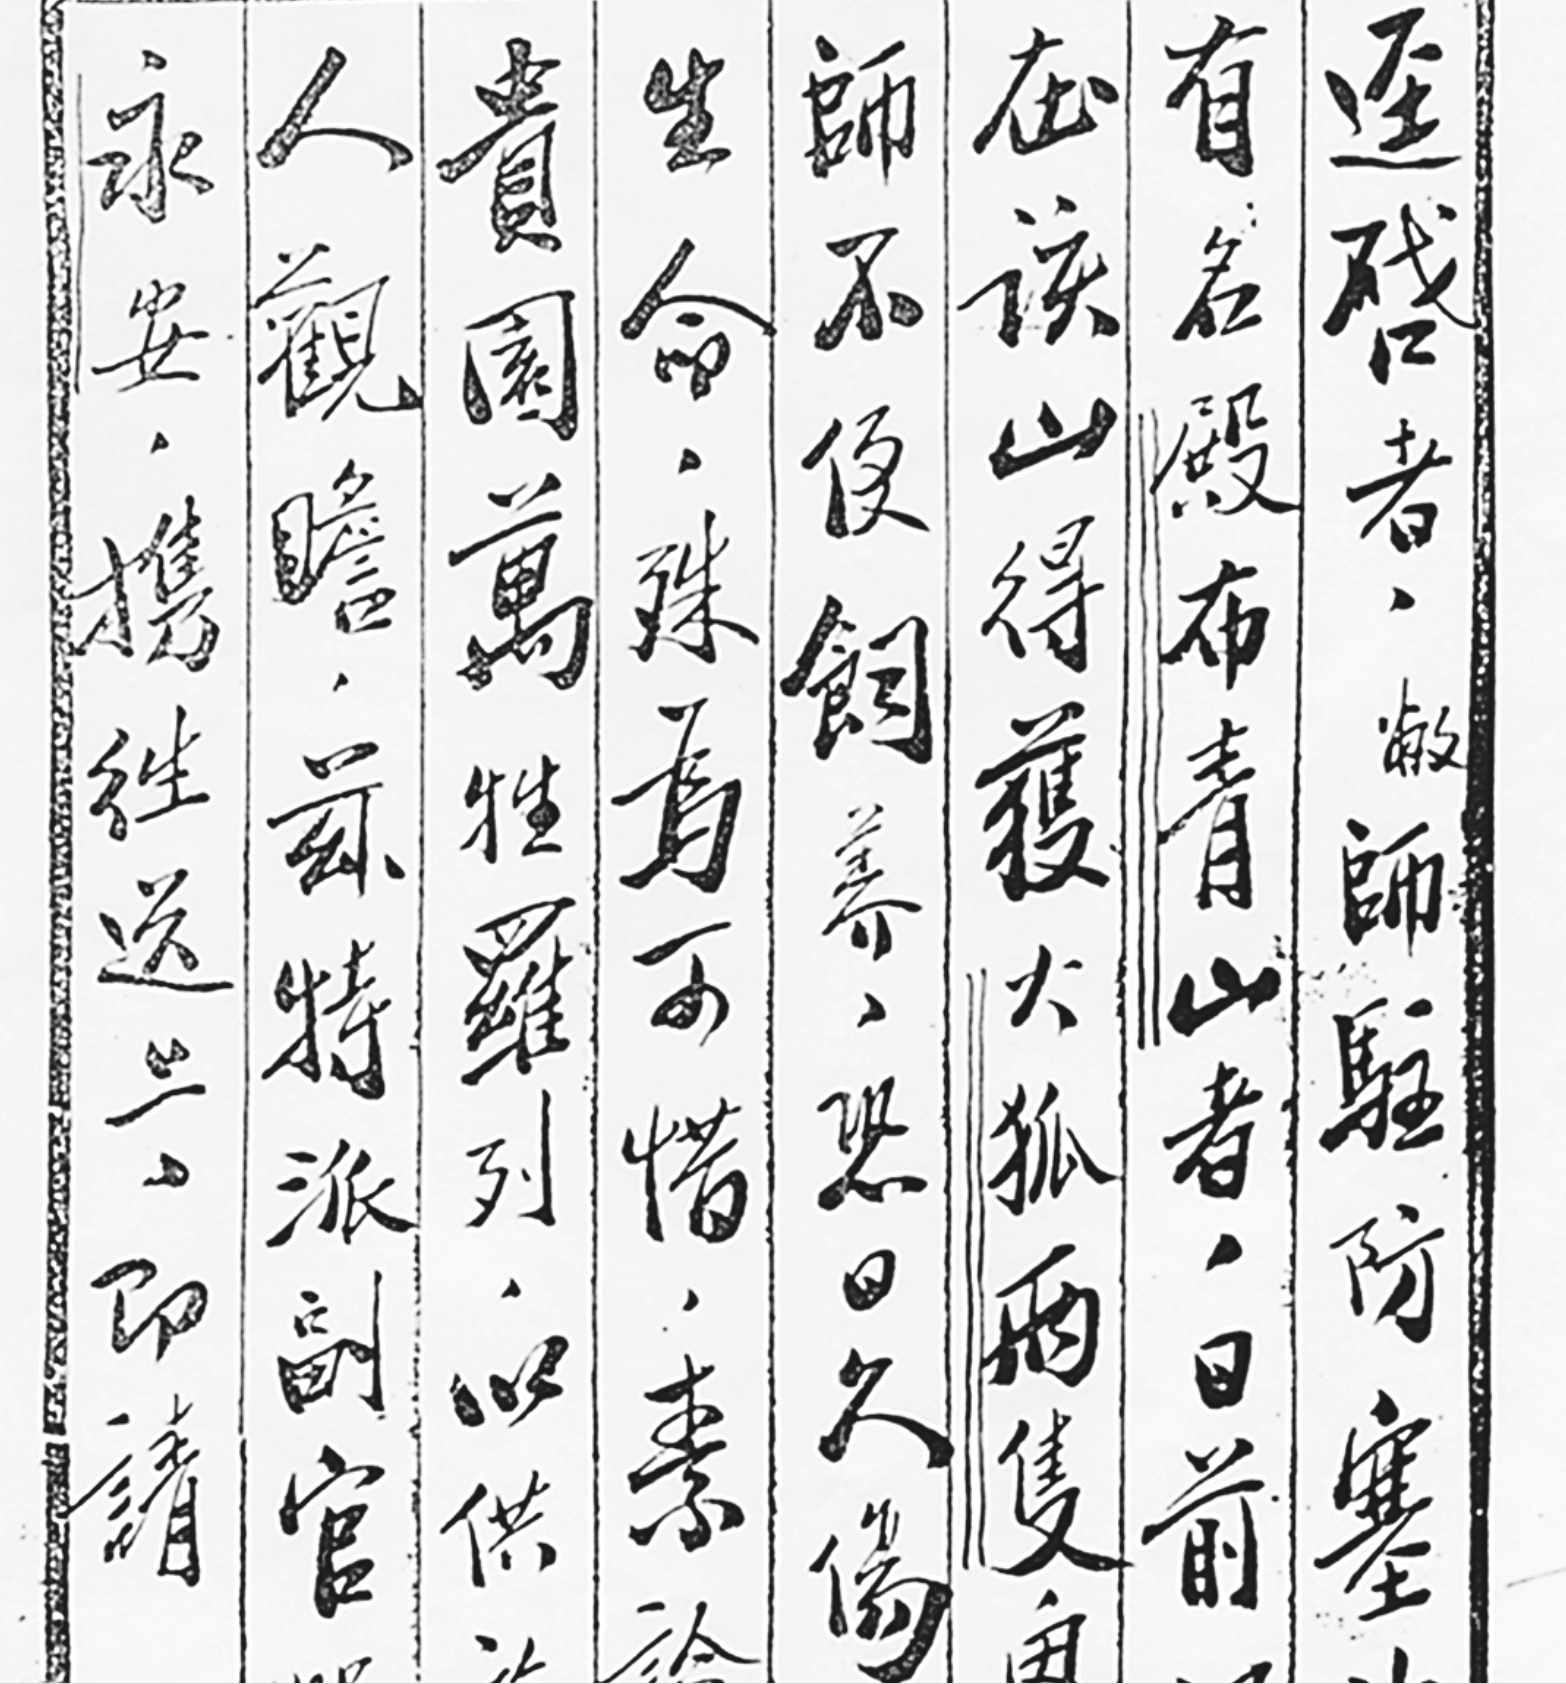 逕啓者、敝師駐防塞
有名殿布青山者、日前
在該山得獲火狐兩隻、因
師不便飼養、恐日久傷
生命、殊為可惜、素諗
貴園萬牲羅列、以供
人觀瞻、茲特派副官
永安、攜往送上、即請